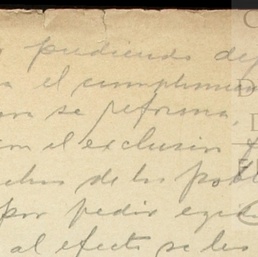 pudiendo de
a el cumplimien
se reforma,
con el exclusion
chos de los pobl
por pedir egid
al efecto se les